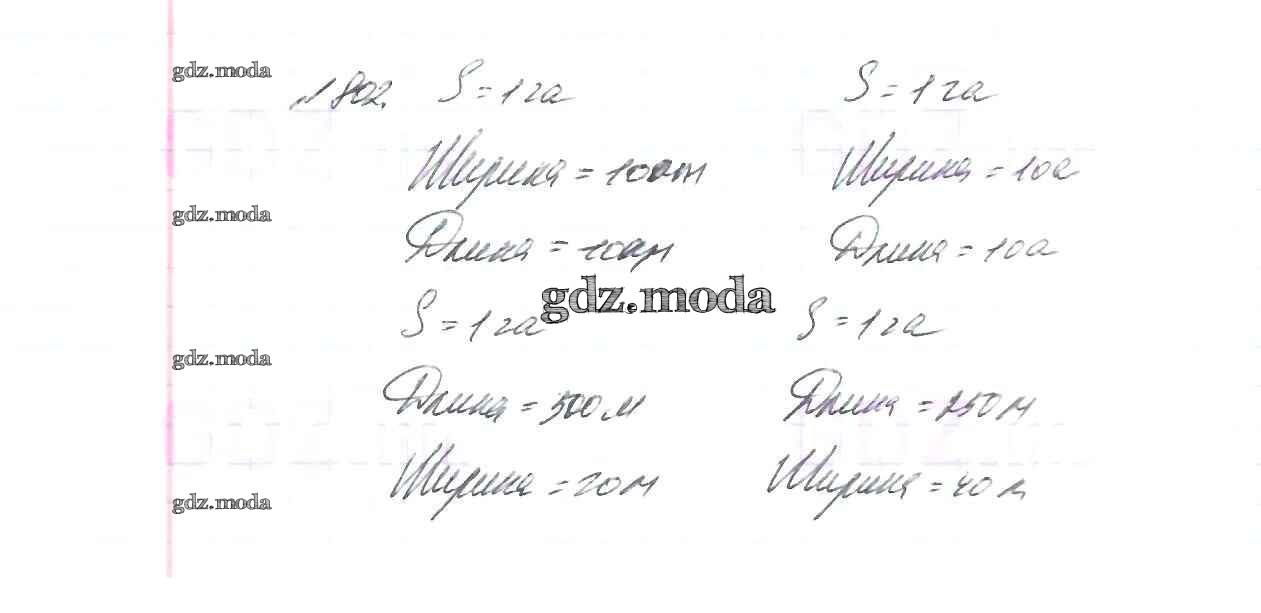 gdz.moda
№802. S = 1 га S = 1 га
Ширина = 100 м Ширина = 10а
gdz.moda
Длина = 100м Длина = 10а
gdz.moda
S = 1 га S = 1 га
gdz.moda
Длина = 500 м Длина = 250 м
Ширина = 20 м Ширина = 40 м
gdz.moda